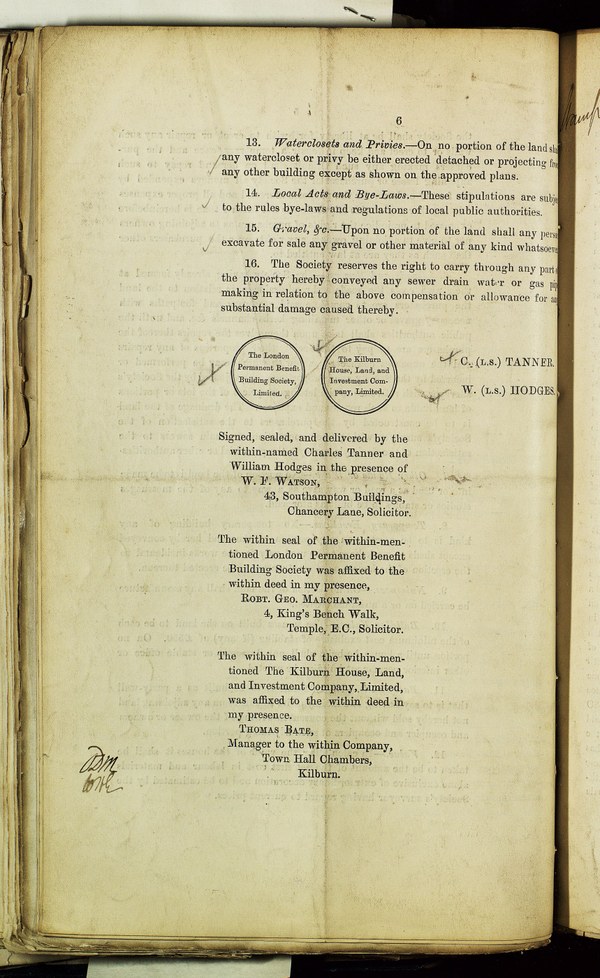 6
13. Waterclosets and Privies.—On no portion of the land
any watercloset or privy be either erected detached or projecting
any other building except as shown on the approved plans.
14. Local Acts and Bye-Laws.—These stipulations are
to the rules bye-laws and regulations of local public authorities.
15. Gravel, &c.—Upon no portion of the land shall any
excavate for sale any gravel or other material of any kind
16. The Society reserves the right to carry through any part
the property hereby conveyed any sewer drain water or gas
making in relation to the above compensation or allowance for
substantial damage caused thereby.
The London
Permanent Benefit
Building Society,
Limited.
The Kilburn
House, Land, and
Investment Com-
pany, Limited.
C. (L.S.) TANNER.
W. (L.S.) HODGES.
Signed, sealed, and delivered by the
within-named Charles Tanner and
William Hodges in the presence of
W. F. WATSON,
43, Southampton Buildings,
Chancery Lane, Solicitor.
The within seal of the within-men-
tioned London Permanent Benefit
Building Society was affixed to the
within deed in my presence,
ROBT. GEO. MARCHANT,
4, King's Bench Walk,
Temple, E.C., Solicitor.
The within seal of the within-men-
tioned The Kilburn House, Land,
and Investment Company, Limited,
was affixed to the within deed in
my presence.
THOMAS BATE,
Manager to the within Company,
Town Hall Chambers,
Kilburn.